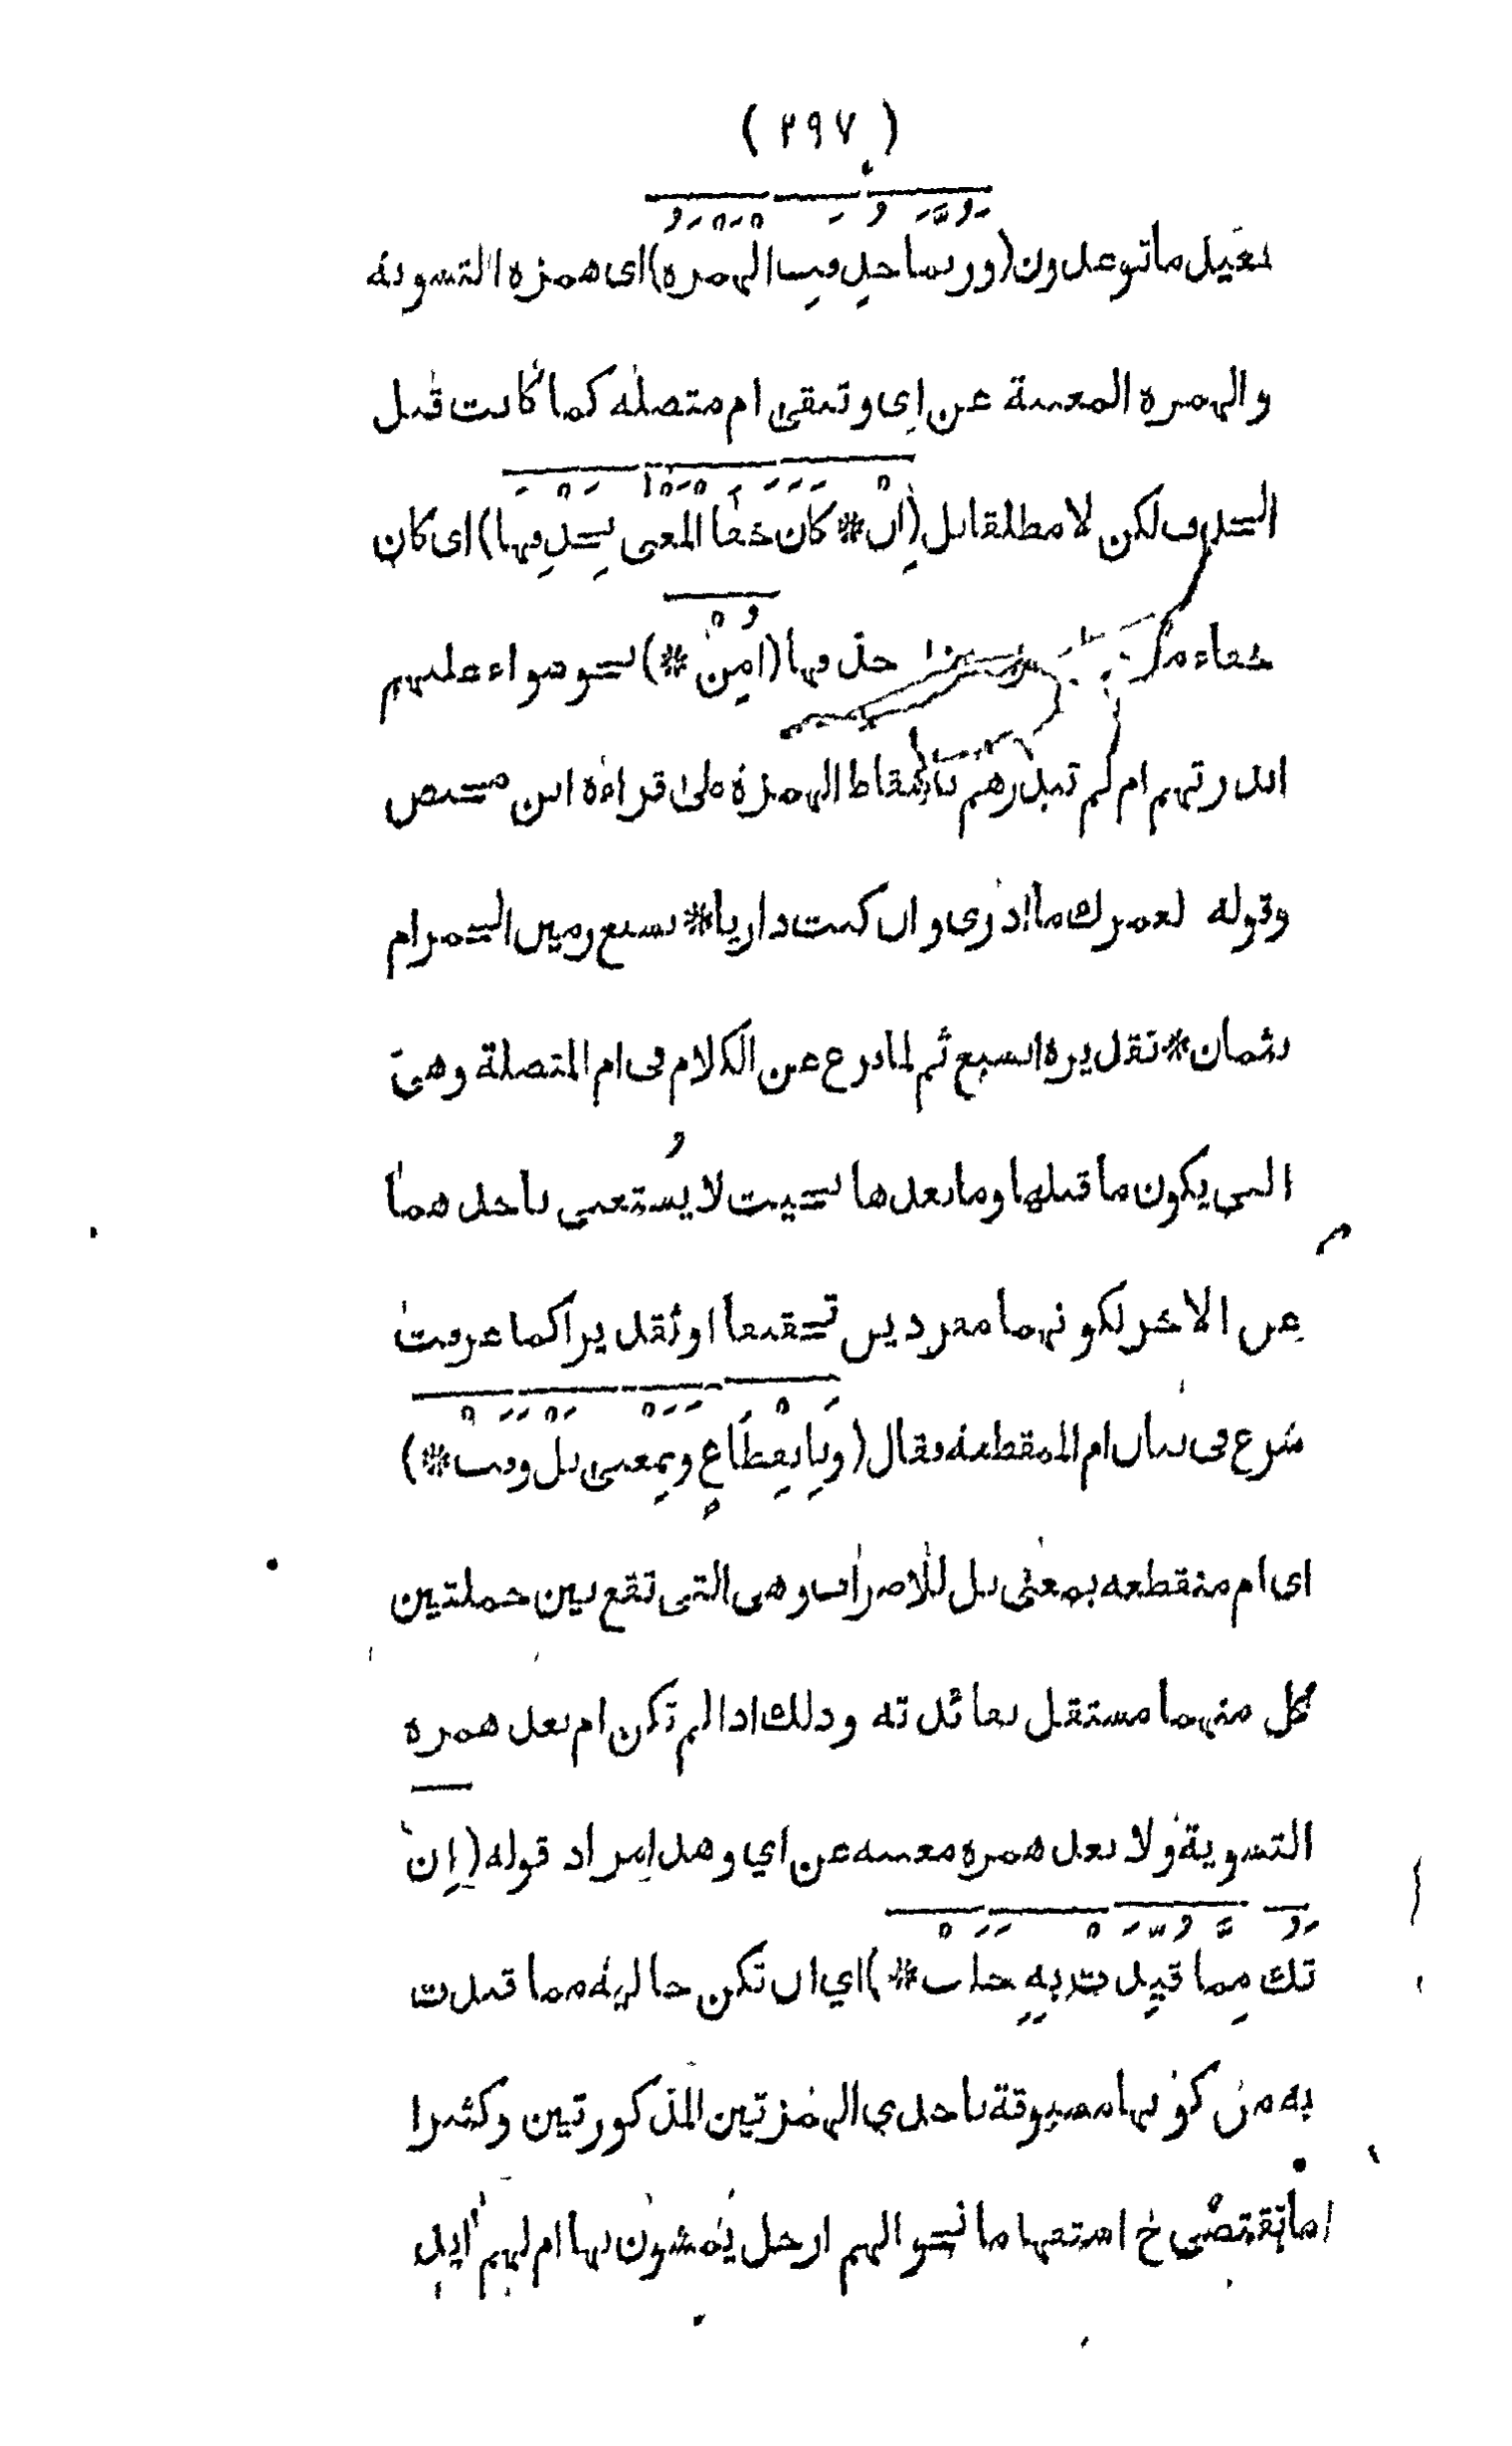 ( ٢٩٧ )
بعيد ما توعدون (وربما حذفت الهمزة) اى همزة التسوية
والهمزة المغنية عن اى وتبقى ام متصلة كما كانت قبل
الحذف لكن لا مطلقا بل (ان * كان خفا المعنى بحذفها) اى كان
خفاء حذفها (امن *) نحو سواء عليهم
انذرتهم ام لم تنذرهم باسقاط الهمزة على قراءة ابن محيصن
وقوله لعمرك ما ادرى وان كنت داريا * بسبع رمين الجمرام
بثمان * تقديره ابسبع ثم لما فرغ عن الكلام فى ام المتصلة وهى
التي يكون ما قبلها وما بعدها بحيث لا يستغنى باحدهما
عن الاخر لكونهما مفردين تحقيقا او تقديرا كما عرفت
شرع فى بيان ام المنقطعة فقال (وبانقطاع وبمعنى بل وفت *)
اى ام منقطعة بمعنى بل للاضراب وهى التى تقع بين جملتين
كل منهما مستقل بفائدته وذلك اذا لم تكن ام بعد همزة
التسوية ولا بعد همزة مغنية عن اي وهذا مراد قوله (ان
تك مما قيدت به خلت *) اي ان تكن خالية مما قيدت
به من كونها مسبوقة باحدي الهمزتين المذكورتين وكثيرا
ما تقتضى ح استفهاما نحو الهم ارجل يمشون بها ام لهم ايد